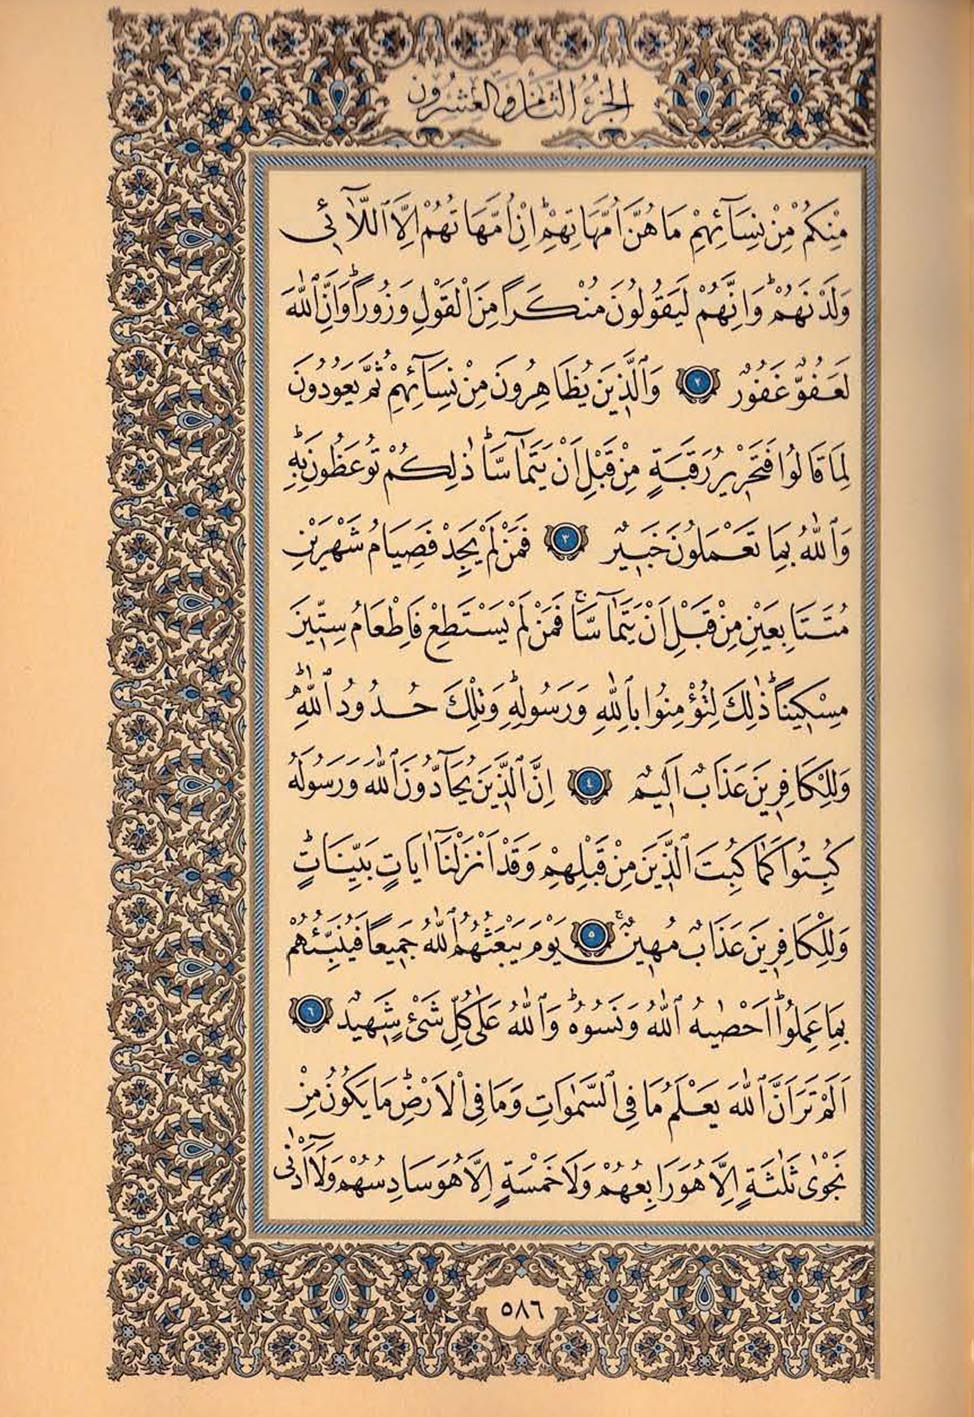 الجزء الثامن والعشرون
مِنْكُمْ مِنْ نِسَٓائِهِمْ مَا هُنَّ اُمَّهَاتِهِمْۜ اِنْ اُمَّهَاتُهُمْ اِلَّا الّٰٓـ۪ٔي
وَلَدْنَهُمْۜ وَاِنَّهُمْ لَيَقُولُونَ مُنْكَرًا مِنَ الْقَوْلِ وَزُورًاۜ وَاِنَّ اللّٰهَ
لَعَفُوٌّ غَفُورٌ ﴿٢﴾ وَالَّذ۪ينَ يُظَاهِرُونَ مِنْ نِسَٓائِهِمْ ثُمَّ يَعُودُونَ
لِمَا قَالُوا فَتَحْر۪يرُ رَقَبَةٍ مِنْ قَبْلِ اَنْ يَتَمَٓاسَّاۜ ذٰلِكُمْ تُوعَظُونَ بِه۪ۜ
وَاللّٰهُ بِمَا تَعْمَلُونَ خَب۪يرٌ ﴿٣﴾ فَمَنْ لَمْ يَجِدْ فَصِيَامُ شَهْرَيْنِ
مُتَتَابِعَيْنِ مِنْ قَبْلِ اَنْ يَتَمَٓاسَّاۚ فَمَنْ لَمْ يَسْتَطِعْ فَاِطْعَامُ سِتّ۪ينَ
مِسْك۪ينًاۜ ذٰلِكَ لِتُؤْمِنُوا بِاللّٰهِ وَرَسُولِه۪ۜ وَتِلْكَ حُدُودُ اللّٰهِۜ
وَلِلْكَافِر۪ينَ عَذَابٌ اَل۪يمٌ ﴿٤﴾ اِنَّ الَّذ۪ينَ يُحَٓادُّونَ اللّٰهَ وَرَسُولَهُ
كُبِتُوا كَمَا كُبِتَ الَّذ۪ينَ مِنْ قَبْلِهِمْ وَقَدْ اَنْزَلْنَٓا اٰيَاتٍ بَيِّنَاتٍۜ
وَلِلْكَافِر۪ينَ عَذَابٌ مُه۪ينٌۚ ﴿٥﴾ يَوْمَ يَبْعَثُهُمُ اللّٰهُ جَم۪يعًا فَيُنَبِّئُهُمْ
بِمَا عَمِلُواۜ اَحْصٰيهُ اللّٰهُ وَنَسُوهُۜ وَاللّٰهُ عَلٰى كُلِّ شَيْءٍ شَه۪يدٌ ﴿٦﴾
اَلَمْ تَرَ اَنَّ اللّٰهَ يَعْلَمُ مَا فِي السَّمٰوَاتِ وَمَا فِي الْاَرْضِۜ مَا يَكُونُ مِنْ
نَجْوٰى ثَلٰثَةٍ اِلَّا هُوَ رَابِعُهُمْ وَلَا خَمْسَةٍ اِلَّا هُوَ سَادِسُهُمْ وَلَٓا اَدْنٰى
٥٨٦